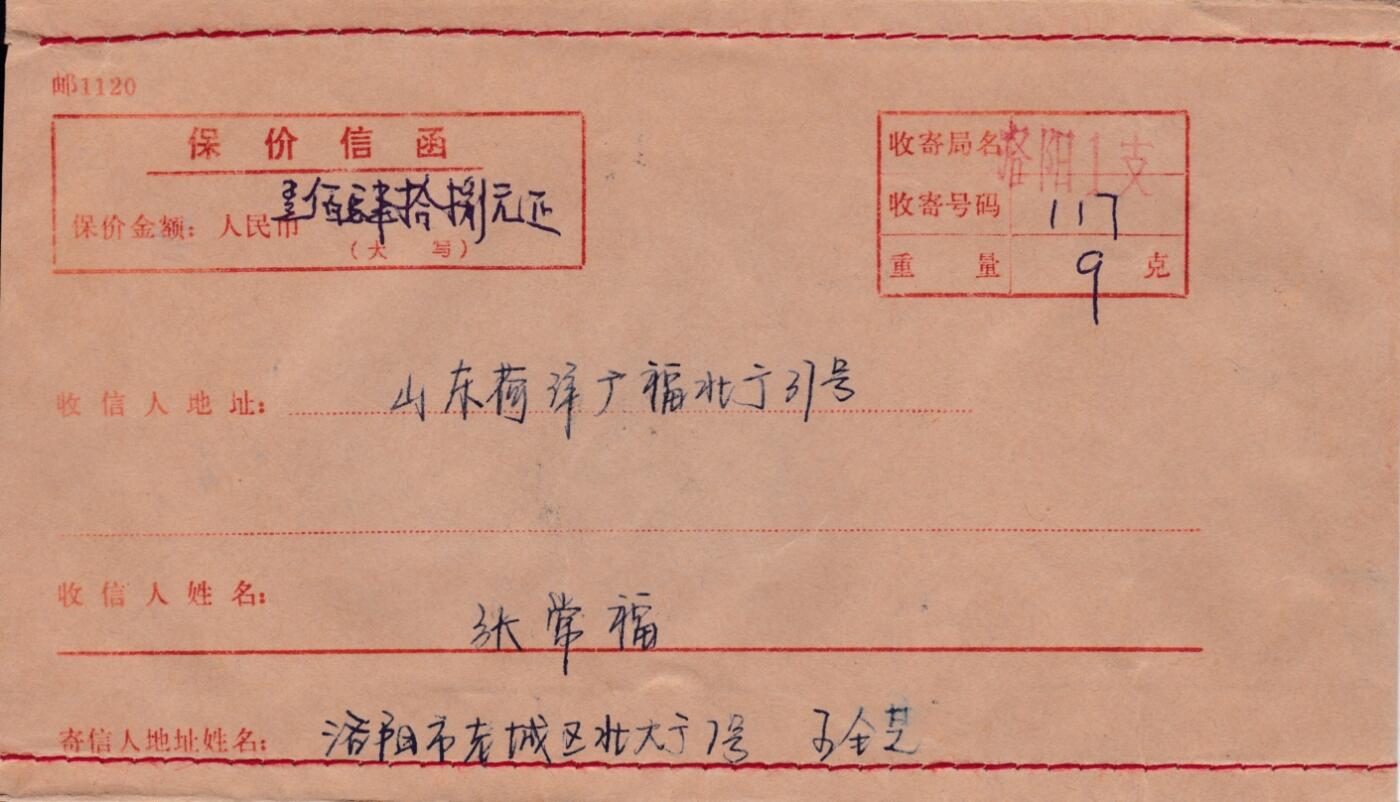 邮1120
保价信函
保价金额：人民币壹佰肆拾捌元正
（大 写）
收寄局名 洛阳1支
收寄号码 117
重 量 9 克
收信人地址： 山东荷泽广福北亍31号
收信人姓名：
张常福
寄信人地址姓名： 洛阳市老城区北大亍7号 王全芝